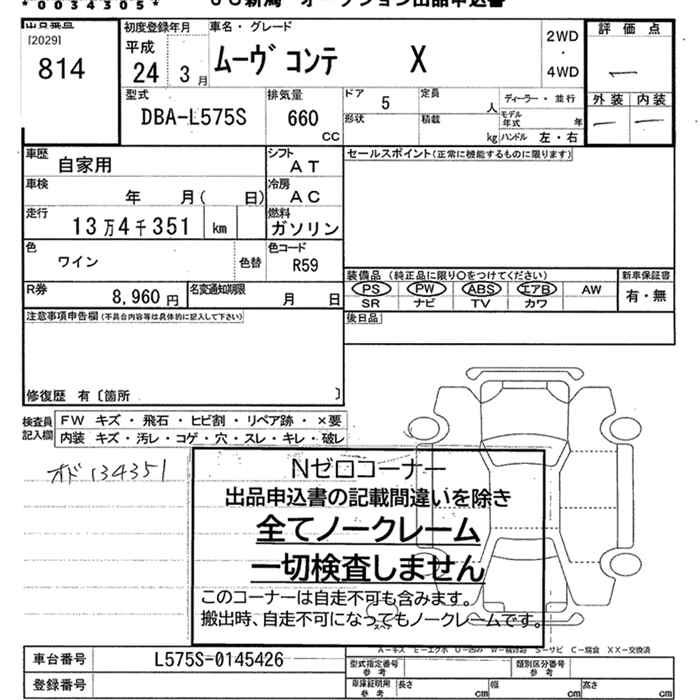 *0034305*
JU新潟 オークション出品申込書
出品番号
[2029]
814
初度登録年月
平成
24 3 月
車名・グレード
ムーヴ コンテ X
2WD
・
4WD
評価点
―
外装 内装
― ―
型式
DBA-L575S
排気量
660
CC
ドア
5
形状
定員
人
積載
kg
ディーラー・並行
モデル年式
年
ハンドル 左・右
車歴
自家用
シフト
AT
車検
年 月( 日)
冷房
AC
走行
13万4千351 km
燃料
ガソリン
色
ワイン
色替
色コード
R59
R券
8,960 円
名変通知期限
月 日
セールスポイント(正常に機能するものに限ります)
装備品 (純正品に限り○をつけてください)
PS PW ABS エアB AW
SR ナビ TV カワ
新車保証書
有・無
後日品
注意事項申告欄(不具合内容等は具体的に記入して下さい)
修復歴 有〔箇所 〕
検査員記入欄
FW キズ・飛石・ヒビ割・リペア跡・×要
内装 キズ・汚レ・コゲ・穴・スレ・キレ・破レ
オド134351
Nゼロコーナー
出品申込書の記載間違いを除き
全てノークレーム
一切検査しません
このコーナーは自走不可も含みます。
搬出時、自走不可になってもノークレームです。
スペア
A－キズ E－エクボ U－凹み W－補修跡 S－サビ C－腐食 XX－交換済
車台番号
L575S-0145426
登録番号
型式指定番号
参考
類別区分番号
参考
車庫証明用
参考
長さ cm 幅 cm 高さ cm